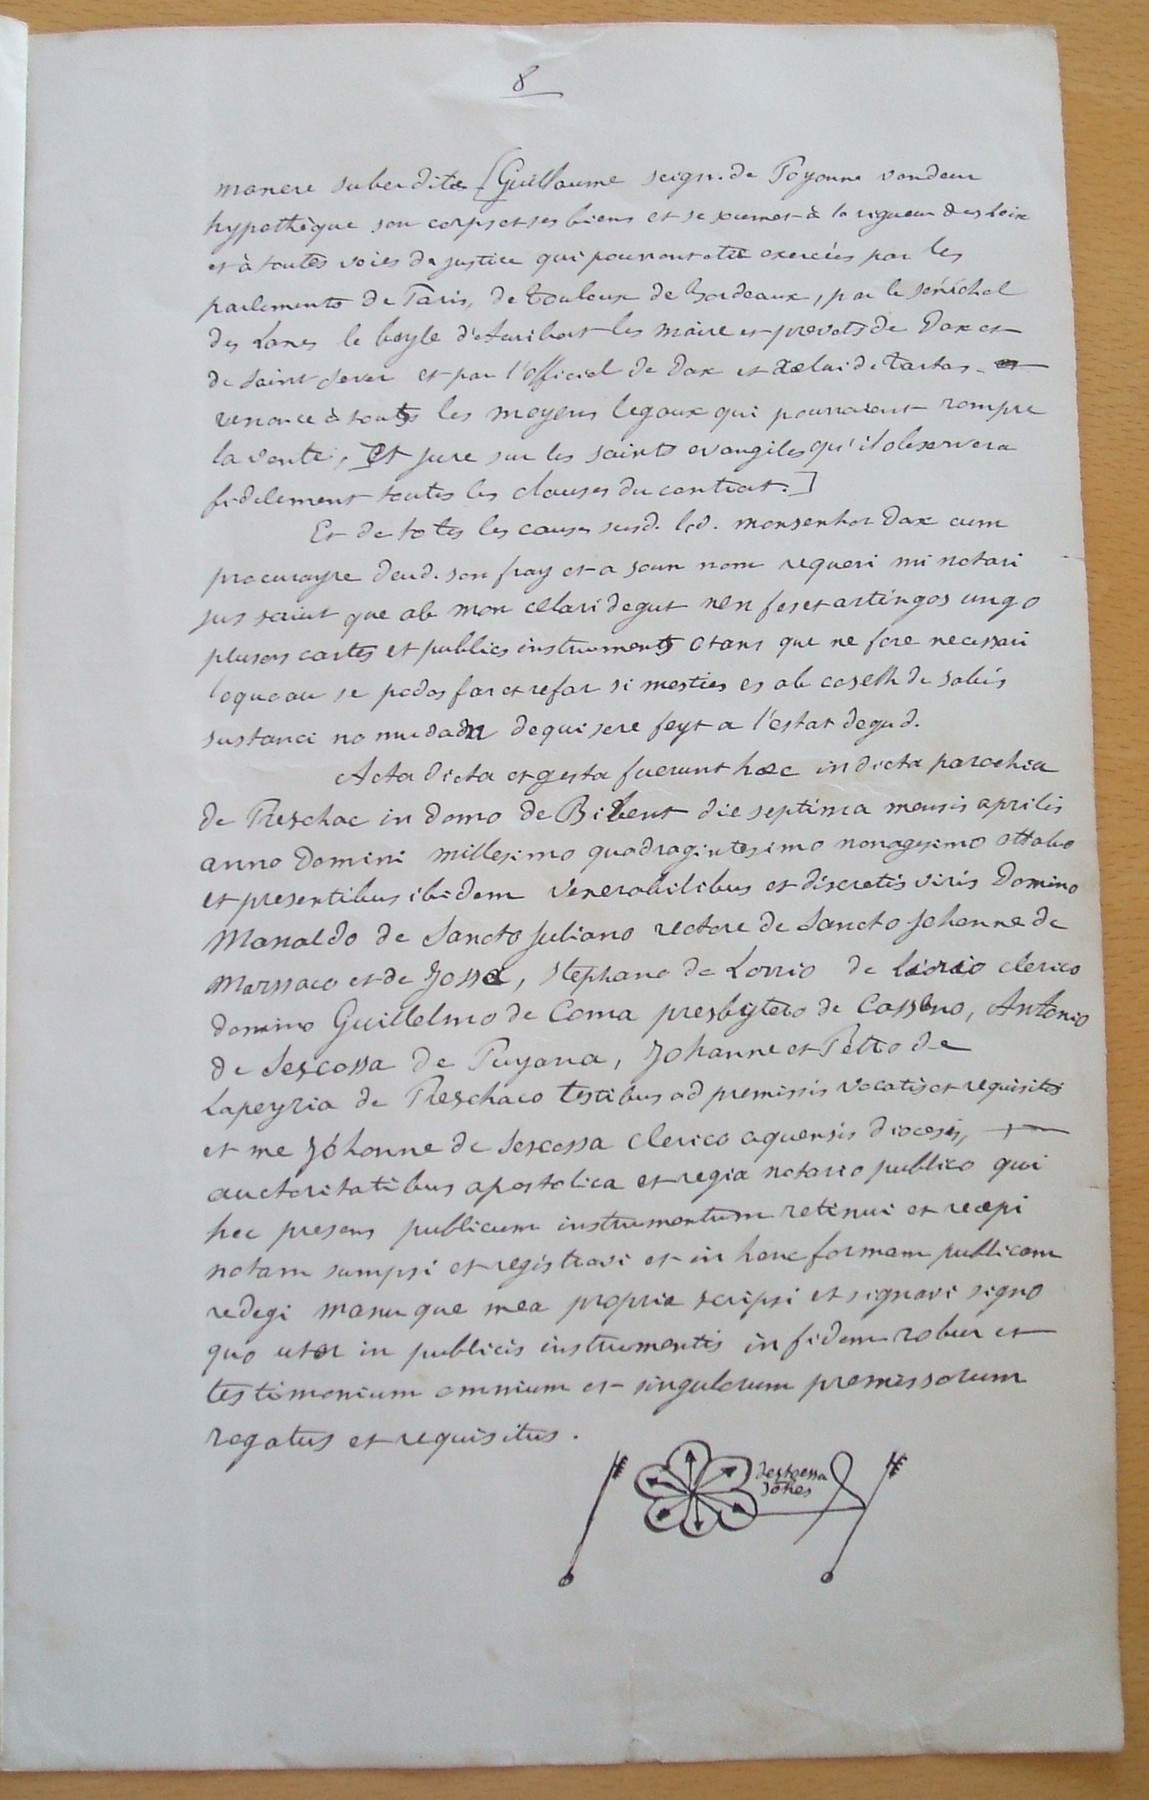 8
manere suberdite [Guillaume seign. de Poyanne vendeur
hypothèque son corps et ses biens et se soumet à la rigueur des loix
et à toutes voies de justice qui pourront etre exercées par les
parlements de Paris, de Toulouse de Bordeaux, par le sénéchal
des Lanes le bayle d'Auribat les maire et prevots de Dax et
de Saint Sever et par l'official de Dax et celui de Tartas
renonce à touts les moyens legaux qui pourraient rompre
la vente, Et jure sur les saints evangiles qu'il observera
fidelement toutes les clauses du contrat.]
Et de totes les causes susd. lod. monsenhor Dax cum
procurayre deud. son fray et a soun nom requeri mi notari
jus scriut que ab mon degut nen fes et ung o
plusors cartes et publics instruments otans que ne fore necessari
loquoau se podos far et refar si mesties es ab coselh de sabis
sustanci no mudade dequi sere feyt a l'estat degud.
Acta dicta et gesta fuerunt hæc in dicta parochia
de Preschac in domo de Bibent die septima mensis aprilis
anno Domini millesimo quadragintesimo nonagesimo ottabo
et presentibus ibidem venerabilibus et discretis viris Domino
Manaldo de Sancto Juliano rectore de Sancto Johanne de
Marssaco et de Josse, Stephano de Lorrio de clerico
domino Guillelmo de Coma presbytero de Casseno, Antonio
de Sescossa de Puyana, Johanne et Petro de
Lapeyria de Preschaco testibus ad premissis vocatis et requisitis
et me Johanne de Sescossa clerico aquensis diocesis,
auctoritatibus apostolica et regia notario publico qui
hec presens publicum instrumentum retinui et recepi
notam sumpsi et registravi et in hanc formam publicam
redegi manu que mea propria scripsi et signavi signo
quo utor in publicis instrumentis in fidem robur et
testimonium omnium et singulorum premissorum
rogatus et requisitus.
Sescossa
Johes